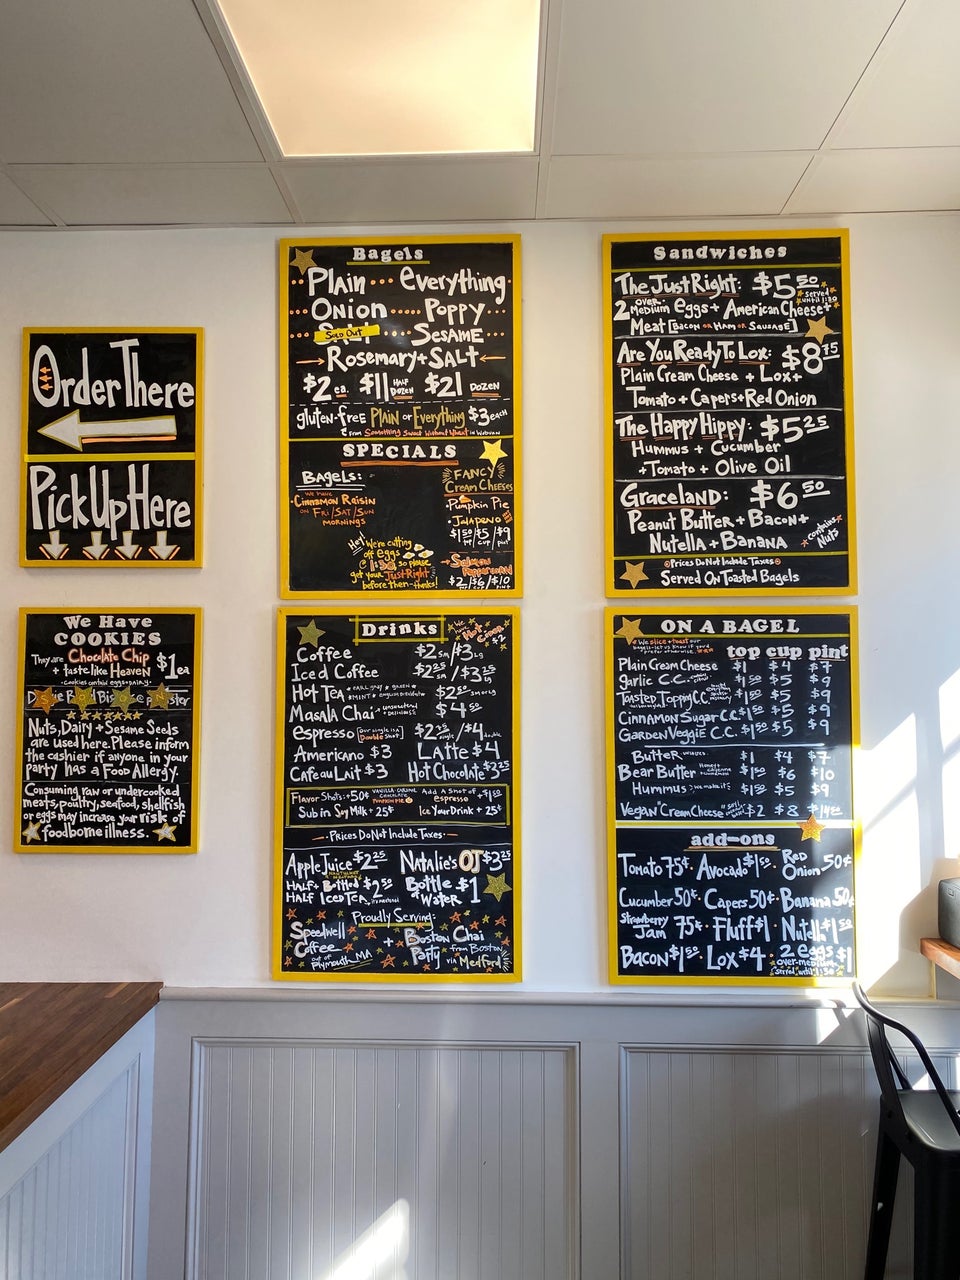 Order There
Pick Up Here
We Have
COOKIES
They are Chocolate Chip
+ taste like Heaven
$1ea
Nuts, Dairy + Sesame Seeds
are used here. Please inform
the cashier if anyone in your
party has a Food Allergy.
Consuming raw or undercooked
meats, poultry, seafood, shellfish
or eggs may increase your risk of
foodborne illness.
Bagels
Plain everything
Onion Poppy
Sold Out Sesame
Rosemary + Salt
$2 ea. $11 Half Dozen $21 Dozen
gluten-free Plain or Everything $3 each
SPECIALS
Bagels:
We have
Cinnamon Raisin
on Fri/Sat/Sun
mornings
FANCY
Cream Cheeses
Pumpkin Pie
Jalapeno
$1.50 top $5 cup $9 pint
Hey! We're cutting
off eggs
@ 1:30 so please
get your Just Right
before then-thanks!
Salmon
Peppercorn
$2 $6 $10
Sandwiches
The Just Right: $5.50
served until 1:30
2 over medium eggs + American Cheese +
Meat [Bacon or Ham or Sausage]
Are You Ready To Lox: $8.75
Plain Cream Cheese + Lox +
Tomato + Capers + Red Onion
The Happy Hippy: $5.25
Hummus + Cucumber
+ Tomato + Olive Oil
Graceland: $6.50
Peanut Butter + Bacon +
Nutella + Banana
contains Nuts
Prices Do Not Include Taxes
Served On Toasted Bagels
Drinks
We have Hot Cocoa $2
Coffee $2 sm/$3 LG
Iced Coffee $2.25 sm/$3.25
Hot Tea $2.50 sm or lg
Masala Chai unsweetened + delicious $4.50
espresso [our single is a double shot] $2.25 single/$4 double
Americano $3 Latte $4
Cafe au Lait $3 Hot Chocolate $3.25
Flavor Shots: +50¢ Add A Shot of espresso +$1.50
Sub in Soy Milk + 25¢ Ice Your Drink + 25¢
Prices Do Not Include Taxes
Apple Juice $2.25 Natalie's OJ $3.25
Half + Half Bottled Iced Tea $2.50 Bottle Water $1
Proudly Serving:
Speedwell Coffee out of Plymouth, MA + Boston Chai Party from Boston via Medford
ON A BAGEL
We slice + toast our
bagels - let us know if you'd
prefer otherwise
top cup pint
Plain Cream Cheese $1 $4 $7
garlic C.C. $1.50 $5 $9
Toasted Topping C.C. $1.50 $5 $9
Cinnamon Sugar C.C. $1.50 $5 $9
Garden Veggie C.C. $1.50 $5 $9
Butter $1 $4 $7
Bear Butter $1.50 $6 $10
Hummus we make it $1.50 $5 $9
Vegan Cream Cheese $2 $8 $14.50
add-ons
Tomato 75¢ · Avocado $1.50 · Red Onion 50¢
Cucumber 50¢ · Capers 50¢ · Banana 50¢
Strawberry Jam 75¢ · Fluff $1 · Nutella $1.50
Bacon $1.50 · Lox $4 · 2 eggs $1
over-medium
served until 1:30